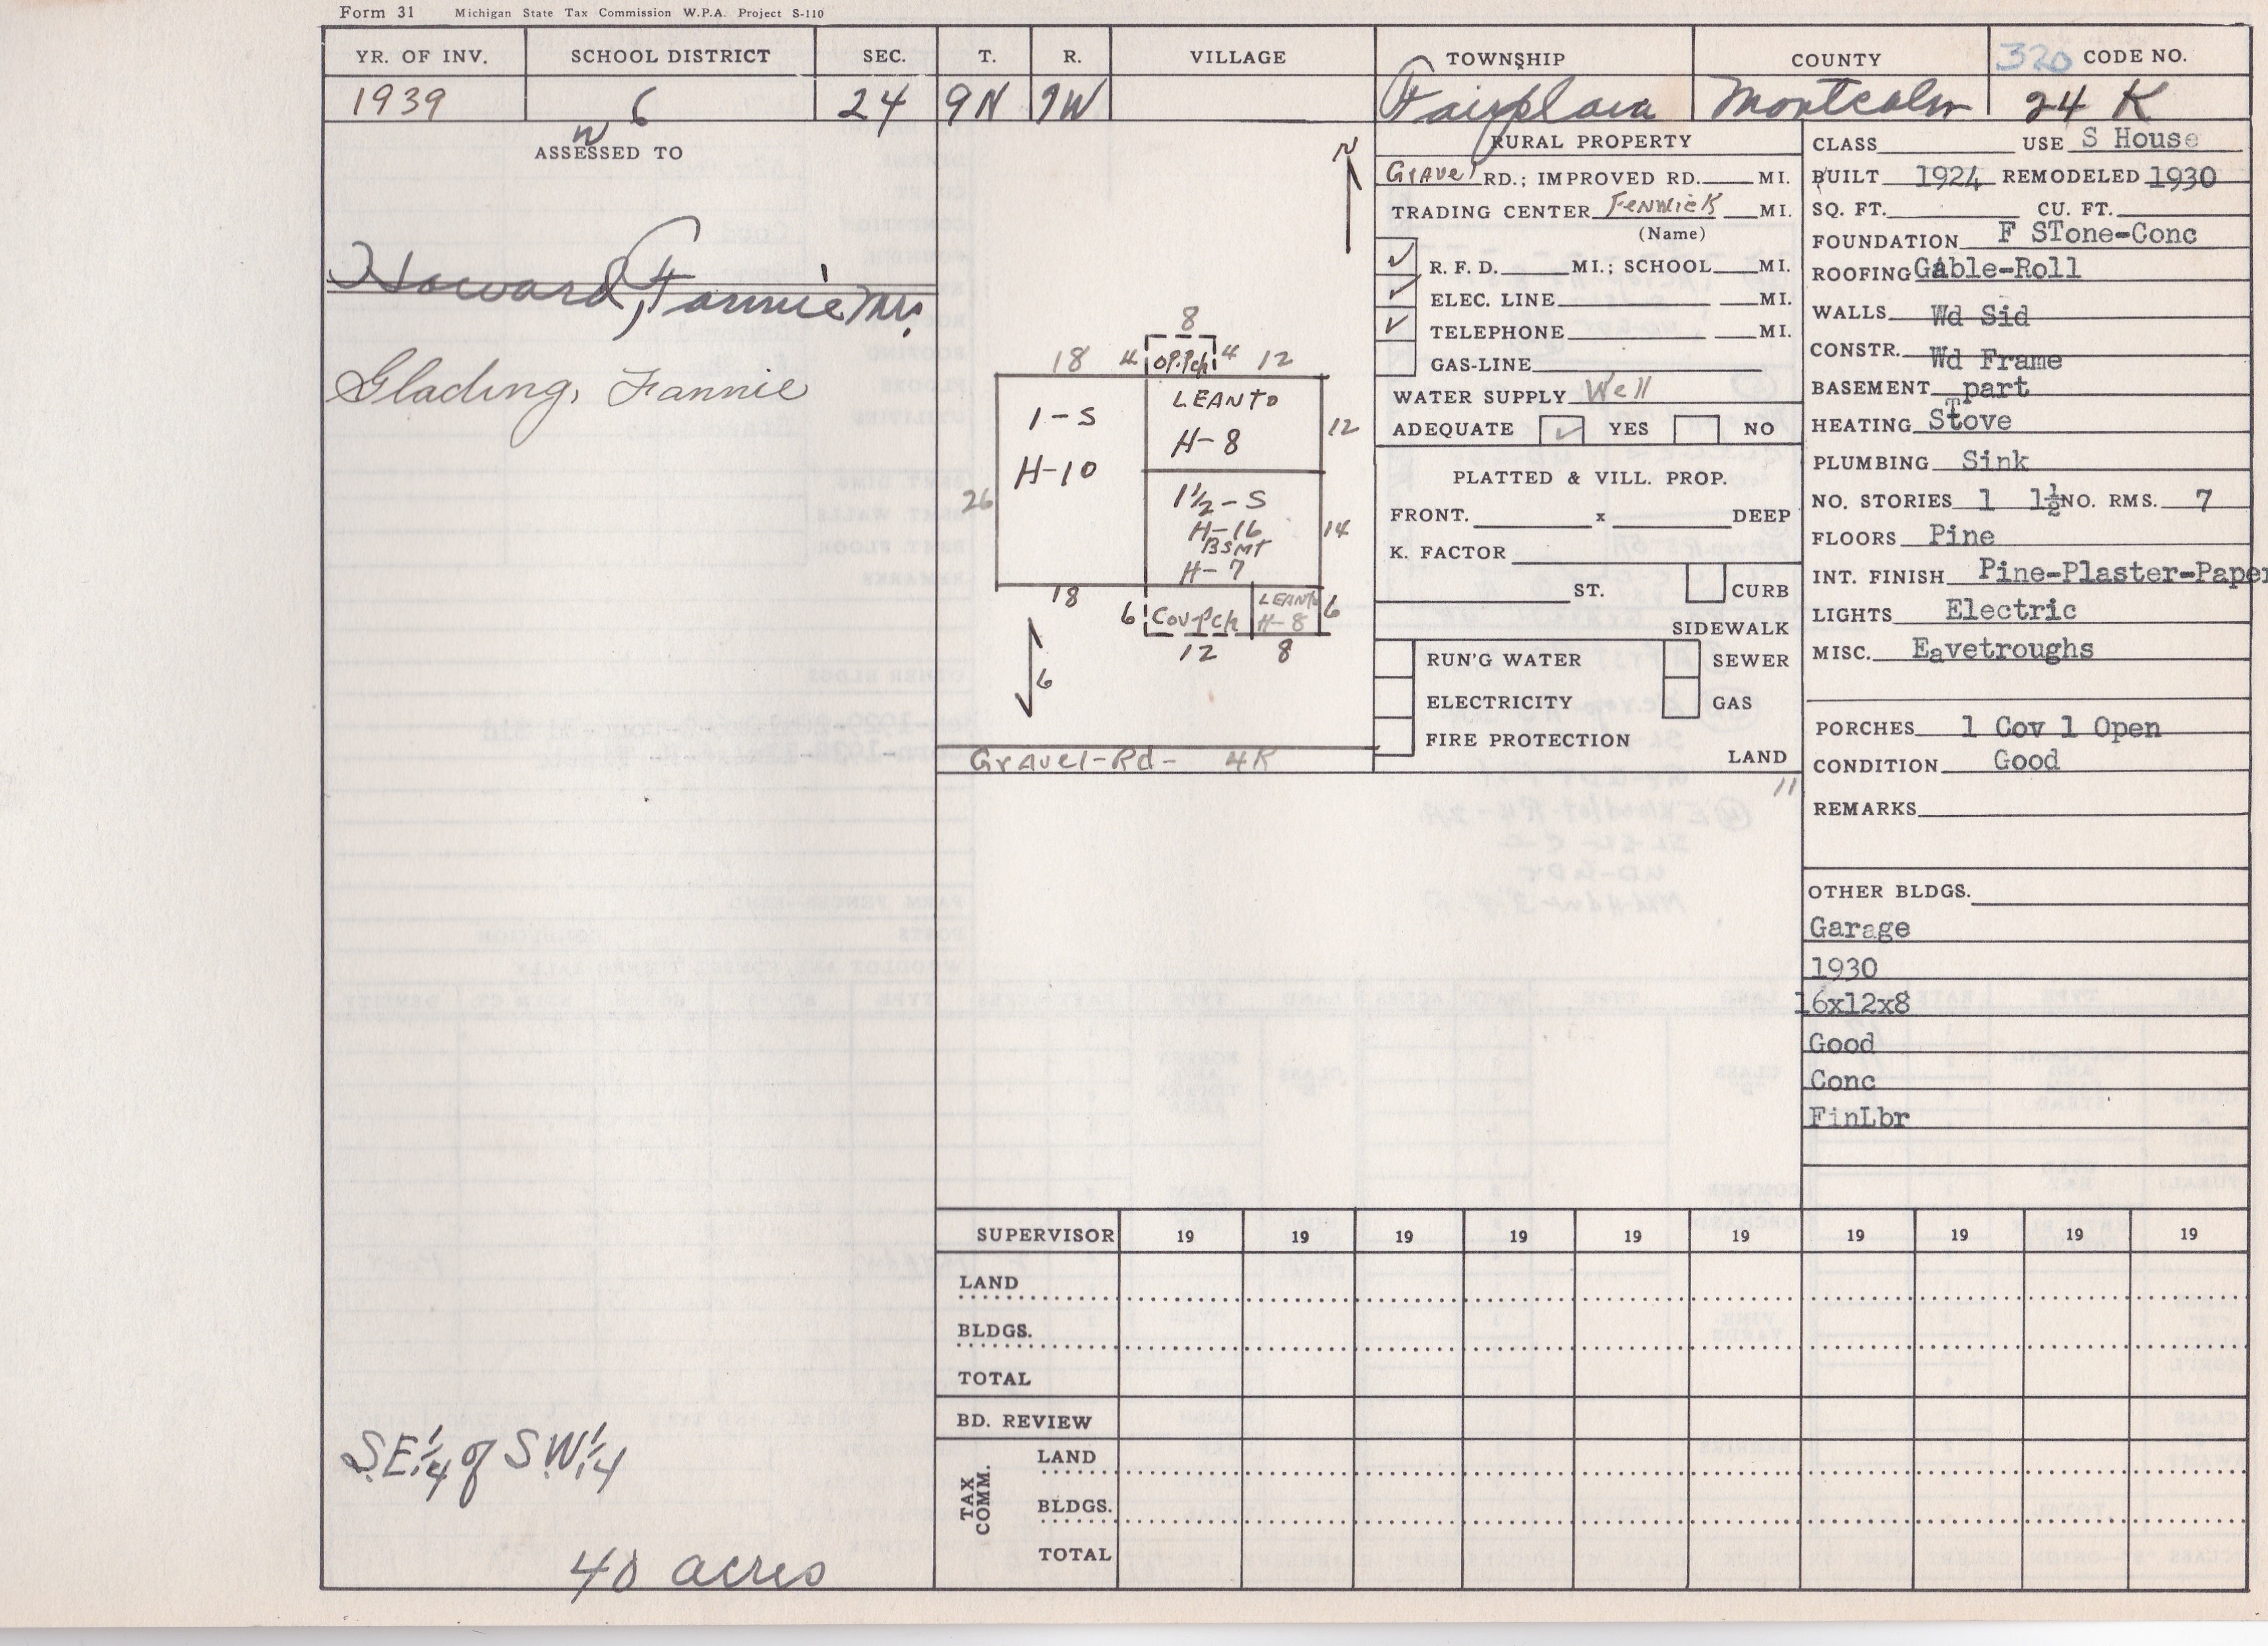 Form 31 Michigan State Tax Commission W.P.A. Project S-110
YR. OF INV. SCHOOL DISTRICT SEC. T. R. VILLAGE TOWNSHIP COUNTY 320 CODE NO.
1939 6 24 9N 7W Fairplain Montcalm 24 K
ASSESSED TO
Howard, Fannie Mrs.
Glading, Fannie
S.E 1/4 of S.W 1/4
40 acres
N
8
18 4 OP.Pch 4 12
1-S
H-10
LEANTO
H-8
12
26
1½-S
H-16
BSMT
H-7
14
18
6 Cov Pch LEANTO H-8 6
12 8
6
Gravel-Rd- 4R
RURAL PROPERTY
Gravel RD.; IMPROVED RD. MI.
TRADING CENTER Fenwick MI.
(Name)
✓ R. F. D. MI.; SCHOOL MI.
✓ ELEC. LINE MI.
✓ TELEPHONE MI.
GAS-LINE
WATER SUPPLY Well
ADEQUATE ✓ YES NO
PLATTED & VILL. PROP.
FRONT. x DEEP
K. FACTOR
ST. CURB
SIDEWALK
RUN'G WATER SEWER
ELECTRICITY GAS
FIRE PROTECTION
LAND
11
CLASS USE S House
BUILT 1924 REMODELED 1930
SQ. FT. CU. FT.
FOUNDATION F STone-Conc
ROOFING Gable-Roll
WALLS Wd Sid
CONSTR. Wd Frame
BASEMENT part
HEATING Stove
PLUMBING Sink
NO. STORIES 1 1½ NO. RMS. 7
FLOORS Pine
INT. FINISH Pine-Plaster-Paper
LIGHTS Electric
MISC. Eavetroughs
PORCHES 1 Cov 1 Open
CONDITION Good
REMARKS
OTHER BLDGS.
Garage
1930
16x12x8
Good
Conc
FinLbr
SUPERVISOR 19 19 19 19 19 19 19 19 19 19
LAND
BLDGS.
TOTAL
BD. REVIEW
TAX COMM.
LAND
BLDGS.
TOTAL